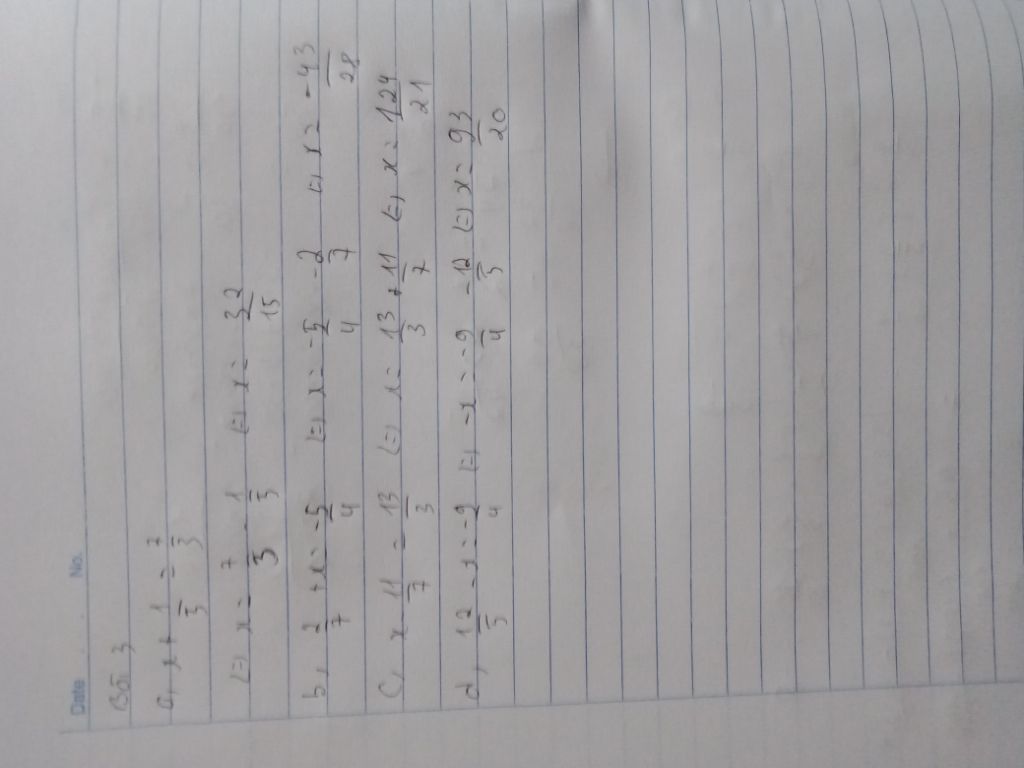 Date No.
Bài 3
a, x + 1/5 = 7/3
(=) x = 7/3 - 1/5 (=) x = 32/15
b, 2/7 + x = -5/4 (=) x = -5/4 - 2/7 (=) x = -43/28
c, x - 11/7 = 13/3 (=) x = 13/3 + 11/7 (=) x = 124/21
d, 12/5 - x = -9/4 (=) -x = -9/4 - 12/5 (=) x = 93/20